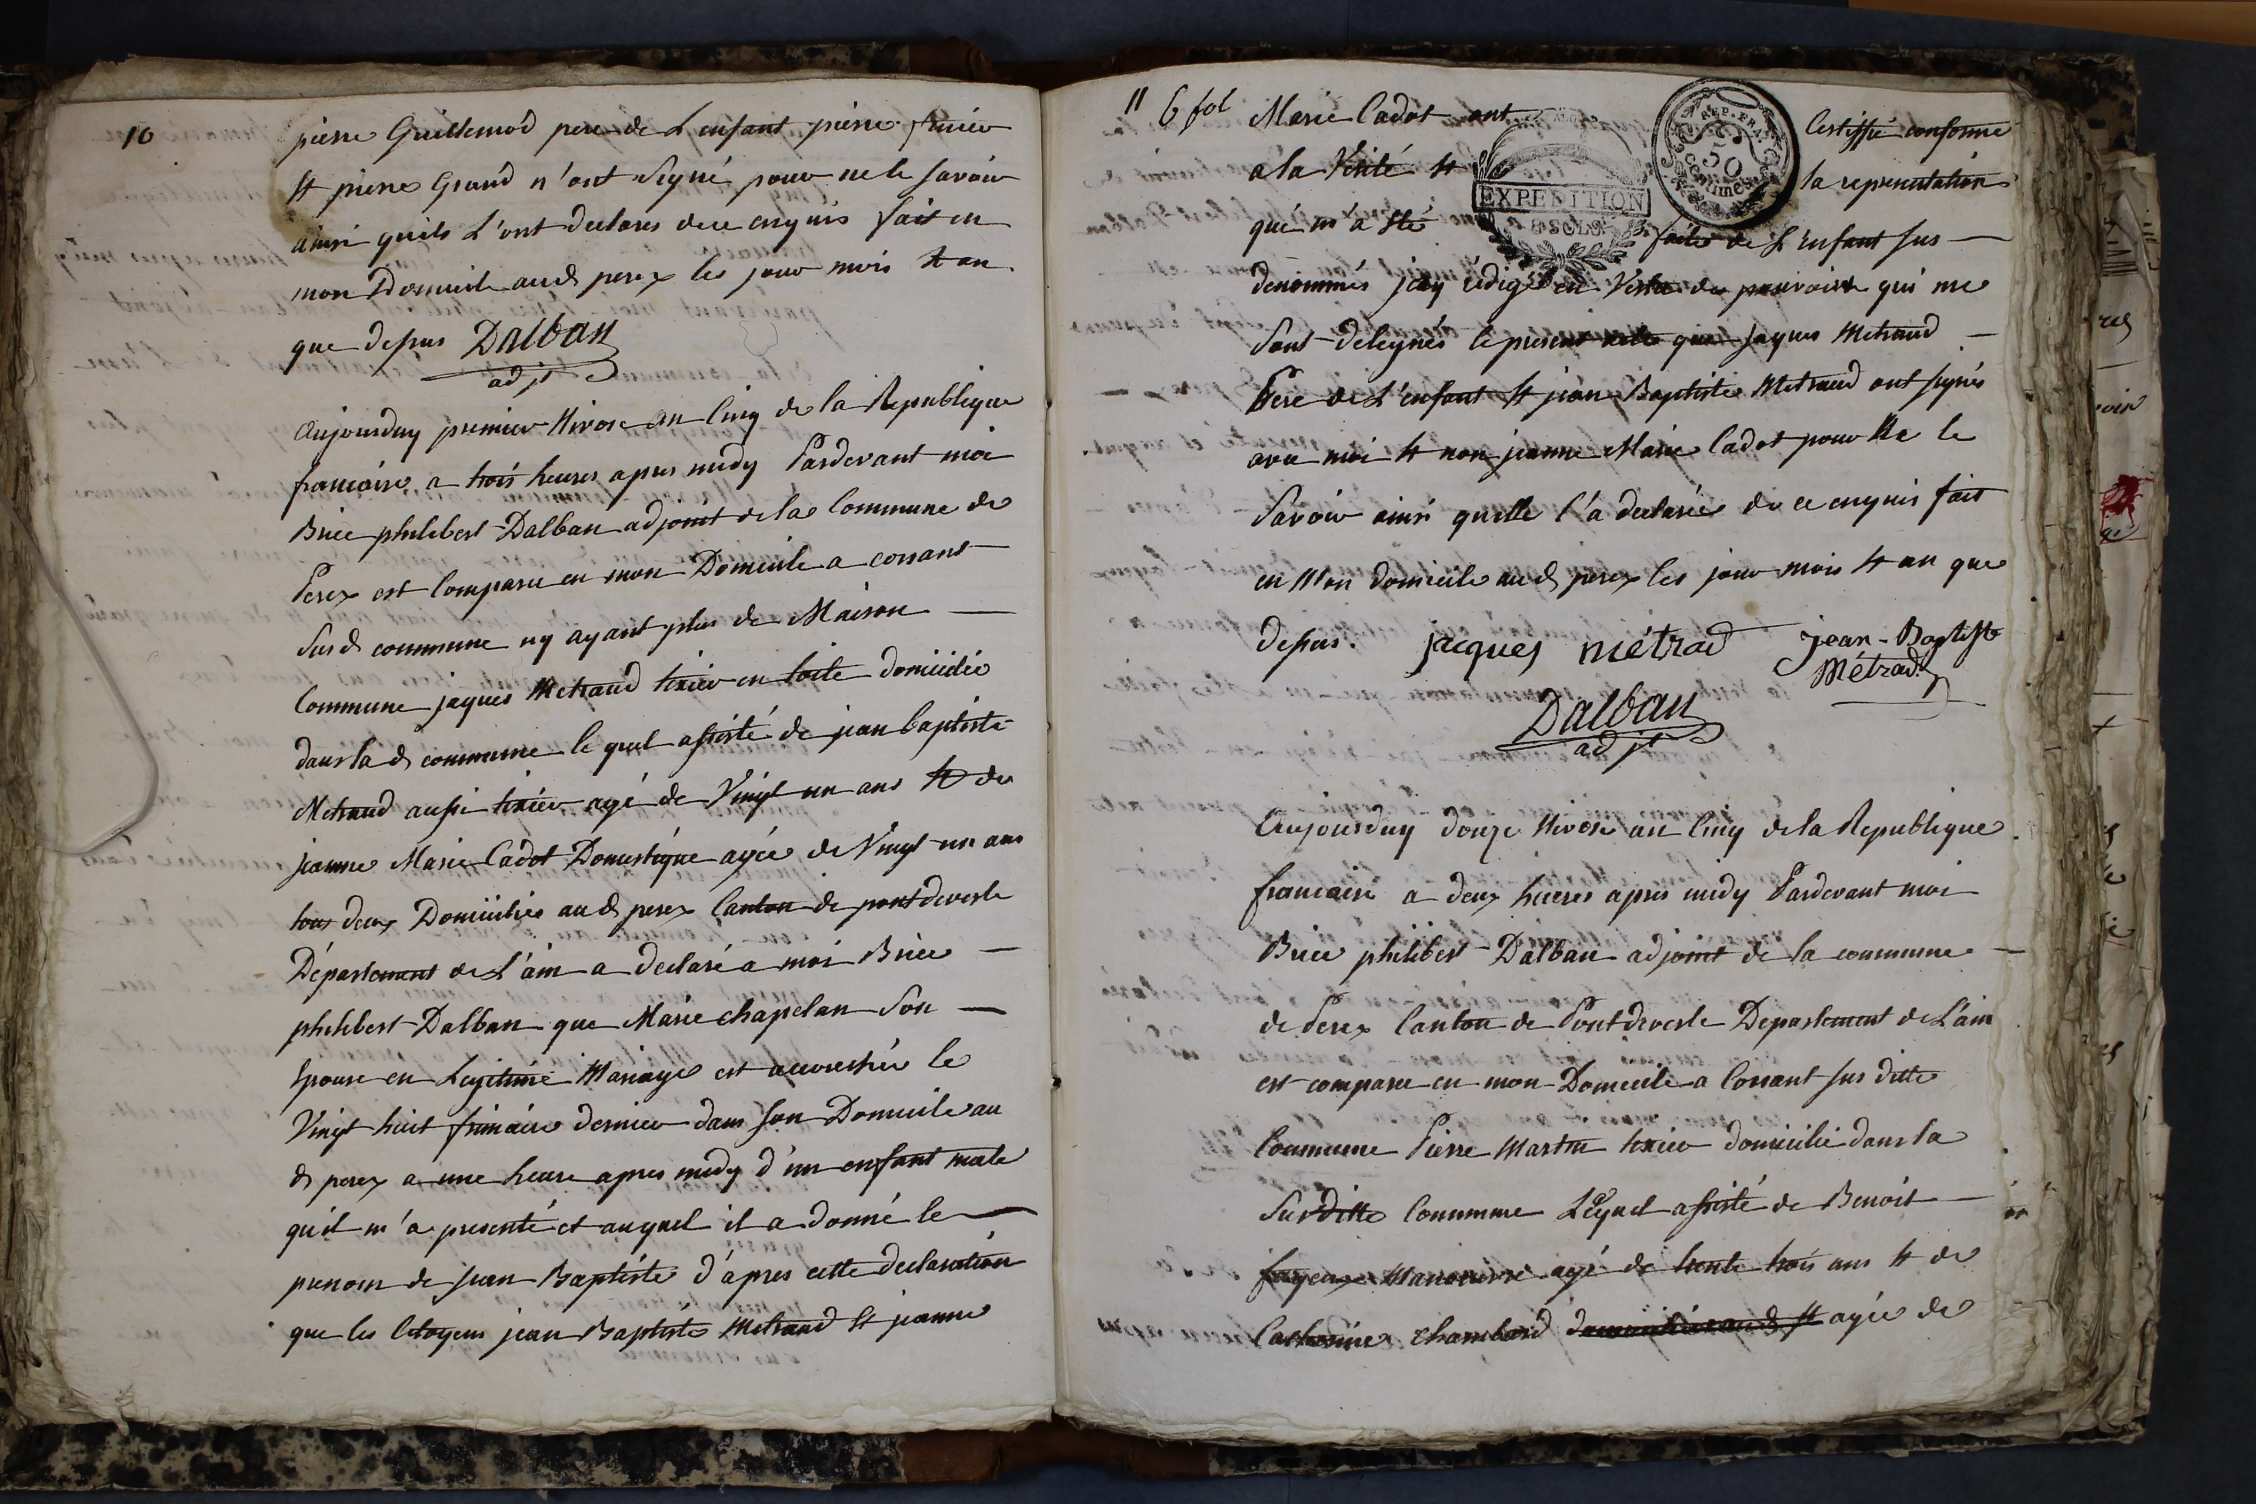 10
pierre Guillemod pere de L'enfant pierre
Et pierre Grand n'ont Signé pour ne le savoir
ainsi quils L'ont declarés de ce enquis fait en
mon Domicile aud perex les jour mois Et an
que dessus Dalban
adjt
Aujourduy premier Nivose an Cinq de la Republique
francaise a trois heures apres midy Pardevant moi
Brice philibert Dalban adjoint de la Commune de
Perex est Comparu en mon Domicile a corsant
Susd commune ny ayant plus de Maison
Commune jaques Metraud tixier en toile domicilié
dans lad commune le quel assisté de jean baptiste
Metraud aussi tixier agé de Vingt un ans Et de
jeanne Marie Cadot Domestique agée de Vingt un ans
tous deux Domiciliés aud perex Canton de pontdevesle
Département de L'ain a declaré a moi Brice
philibert Dalban que Marie chapelan Son
Epouse en Legitime Mariage est accouchée le
Vingt huit frimaire dernier dans son Domicile au
d perex a une heure apres midy d'un enfant male
qu'il m'a presenté et auquel il a donné le
prenom de jean Baptiste d'apres cette declaration
que les Citoyens jean Baptiste Metraud Et jeanne
11 6 fol
Marie Cadot ont Certiffié conforme
a la Vérité Et la representation
qui m'a Eté faite de L'enfant sus
EXPEDITION
REP. FRA.
50
CENTIMES
denommés j'ay rédigé en Vertu des pouvoirs qui me
Sont delegués le présent acte que jaques Metraud
Pere de L'enfant Et jean Baptiste Metraud ont signés
avec moi Et non jeanne Marie Cadot pour Ne le
Savoir ainsi quelle l'a declarée de ce enquis fait
en Mon domicile aud perex les jour mois Et an que
dessus. jacques métrad jean-Baptiste
Métrad
Dalban
adjt
Aujourduy douze Nivose an Cinq de la Republique
francaise a deux heures apres midy Pardevant moi
Brice philibert Dalban adjoint de la commune
de Perex Canton de Pontdevesle Departement de L'ain
est comparu en mon Domicile a Corsant sus ditte
Commune Pierre Martin tixier domicilié dans la
Susditte Commune Lequel assisté de Benoit
fayeux Manoeuvre agé de trente trois ans Et de
Catherine Chambard agée de